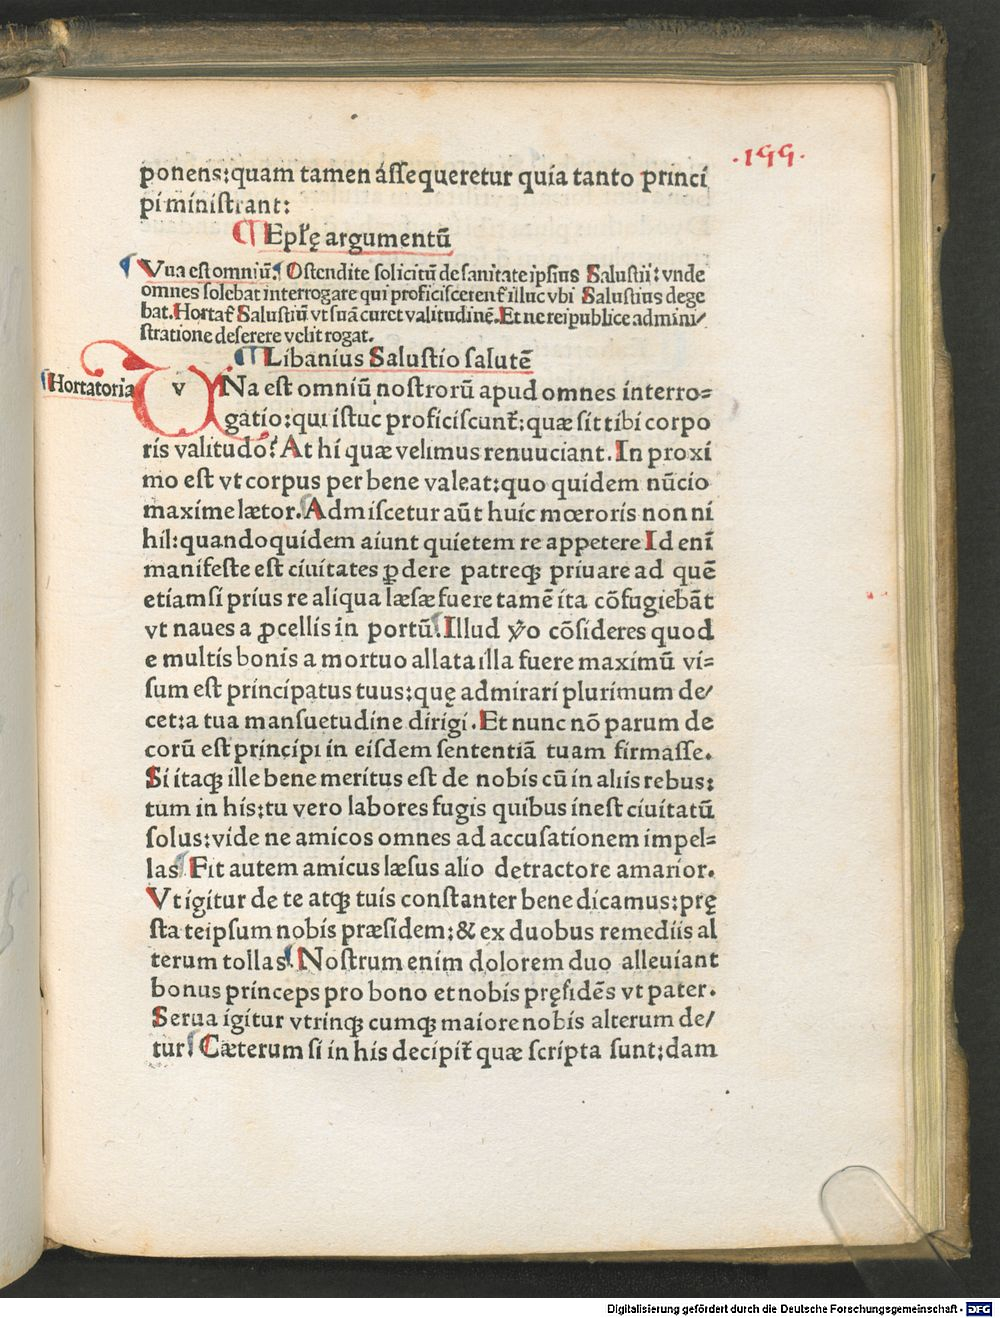 .199.
ponens:quam tamen áſſequeretur quia tanto princi
pi miniſtrant:
¶Epłę argumentū
Vna est omniū. Oſtendite ſolicitū de ſanitate ipſius Saluſtii: vnde
omnes ſolebat interrogare qui proficiſcerent̃ illuc vbi Saluſtius dege
bat. Hortat̃ Saluſtiū vt ſuā curet valitudinē. Et ne reipublice admini/
ſtratione deſerere velit rogat.
¶Libanius Saluſtio ſalutē
Hortatoria
vNa eſt omniū noſtrorū apud omnes interro=
gatio:qui iſtuc proficiſcunt̃:quæ ſit tibi corpo
ris valitudo? At hi quæ velimus renuuciant. In proxi
mo eſt vt corpus per bene valeat:quo quidem nūcio
maxime lætor. Admiſcetur aūt huic mœroris non ni
hil:quandoquidem aiunt quietem re appetere Id enī
manifeſte eſt ciuitates ꝑdere patreqꝫ priuare ad quē
etiamſi prius re aliqua læſæ fuere tamē ita cōfugiebāt
vt naues a ꝓcellis in portū. Illud ỹo cōſideres quod
e multis bonis a mortuo allata illa fuere maximū vi=
ſum eſt principatus tuus:quę admirari plurimum de/
cet:a tua manſuetudine dirigi. Et nunc nō parum de
corū eſt principi in eiſdem ſententiā tuam firmaſſe.
Si itaqꝫ ille bene meritus eſt de nobis cū in aliis rebus:
tum in his:tu vero labores fugis quibus ineſt ciuitatū
ſolus:vide ne amicos omnes ad accuſationem impel=
las Fit autem amicus læſus alio detractore amarior.
Vt igitur de te atqꝫ tuis conſtanter bene dicamus:prę
ſta teipſum nobis præſidem:& ex duobus remediis al
terum tollas. Noſtrum enim dolorem duo alleuiant
bonus princeps pro bono et nobis pręſidēs vt pater.
Serua igitur vtrinqꝫ cumqꝫ maiore nobis alterum de/
tur. Cæterum ſi in his decipit̃ quæ ſcripta ſunt:dam
Digitalisierung gefördert durch die Deutsche Forschungsgemeinschaft - DFG